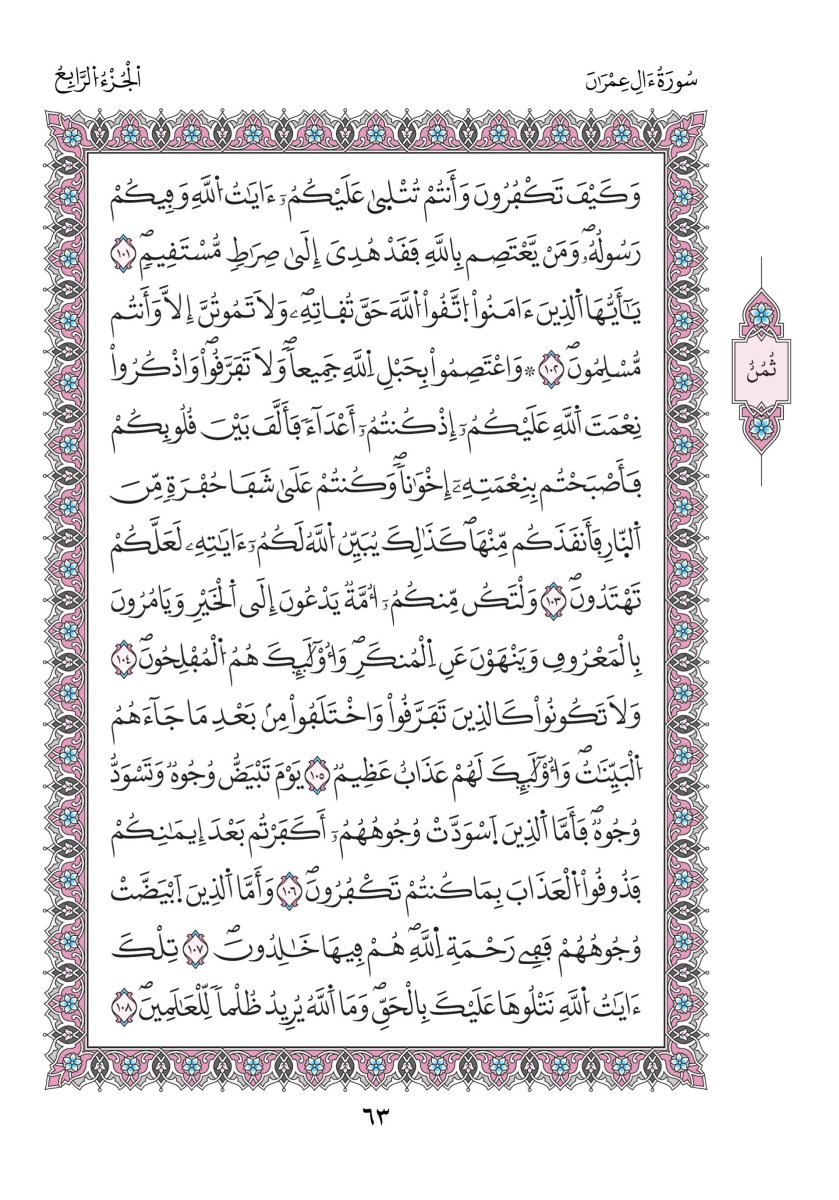 سُورَةُ ءَالِ عِمْرَٰنَ
اَ۬لْجُزْءُ اُ۬لرَّابِعُ
وَكَيْفَ تَكْفُرُونَ وَأَنتُمْ تُتْلَىٰ عَلَيْكُمُۥٓ ءَايَٰتُ اُ۬للَّهِ وَفِيكُمْ
رَسُولُهُۥۖ وَمَنْ يَّعْتَصِم بِاللَّهِ فَقَدْ هُدِيَ إِلَىٰ صِرَٰطٖ مُّسْتَقِيمٖۖ ١٠١
يَٰٓأَيُّهَا اَ۬لذِينَ ءَامَنُواْ اُ۪تَّقُواْ اُ۬للَّهَ حَقَّ تُقَاتِهِۦۖ وَلَا تَمُوتُنَّ إِلَّا وَأَنتُم
مُّسْلِمُونَۖ ١٠٢ ۞ وَاعْتَصِمُواْ بِحَبْلِ اِ۬للَّهِ جَمِيعاٗۖ وَلَا تَفَرَّقُواْۖ وَاذْكُرُواْ
نِعْمَتَ اَ۬للَّهِ عَلَيْكُمُۥٓ إِذْ كُنتُمُۥٓ أَعْدَآءٗ فَأَلَّفَ بَيْنَ قُلُوبِكُمْ
فَأَصْبَحْتُم بِنِعْمَتِهِۦٓ إِخْوَٰناٗۖ وَكُنتُمْ عَلَىٰ شَفَا حُفْرَةٖ مِّنَ
اَ۬لنَّارِ فَأَنقَذَكُم مِّنْهَاۖ كَذَٰلِكَ يُبَيِّنُ اُ۬للَّهُ لَكُمُۥٓ ءَايَٰتِهِۦ لَعَلَّكُمْ
تَهْتَدُونَۖ ١٠٣ وَلْتَكُن مِّنكُمُۥٓ أُمَّةٞ يَدْعُونَ إِلَى اَ۬لْخَيْرِ وَيَامُرُونَ
بِالْمَعْرُوفِ وَيَنْهَوْنَ عَنِ اِ۬لْمُنكَرِۖ وَأُوْلَٰٓئِكَ هُمُ اُ۬لْمُفْلِحُونَۖ ١٠٤
وَلَا تَكُونُواْ كَالذِينَ تَفَرَّقُواْ وَاخْتَلَفُواْ مِنۢ بَعْدِ مَا جَآءَهُمُ
اُ۬لْبَيِّنَٰتُۖ وَأُوْلَٰٓئِكَ لَهُمْ عَذَابٌ عَظِيمٞ ١٠٥ يَوْمَ تَبْيَضُّ وُجُوهٞ وَتَسْوَدُّ
وُجُوهٞۖ فَأَمَّا اَ۬لذِينَ اَ۪سْوَدَّتْ وُجُوهُهُمُۥٓ أَكَفَرْتُم بَعْدَ إِيمَٰنِكُمْ
فَذُوقُواْ اُ۬لْعَذَابَ بِمَا كُنتُمْ تَكْفُرُونَۖ ١٠٦ وَأَمَّا اَ۬لذِينَ اَ۪بْيَضَّتْ
وُجُوهُهُمْ فَفِي رَحْمَةِ اِ۬للَّهِۖ هُمْ فِيهَا خَٰلِدُونَۖ ١٠٧ تِلْكَ
ءَايَٰتُ اُ۬للَّهِ نَتْلُوهَا عَلَيْكَ بِالْحَقِّۖ وَمَا اَ۬للَّهُ يُرِيدُ ظُلْماٗ لِّلْعَٰلَمِينَۖ ١٠٨
ثُمُنُ
٦٣